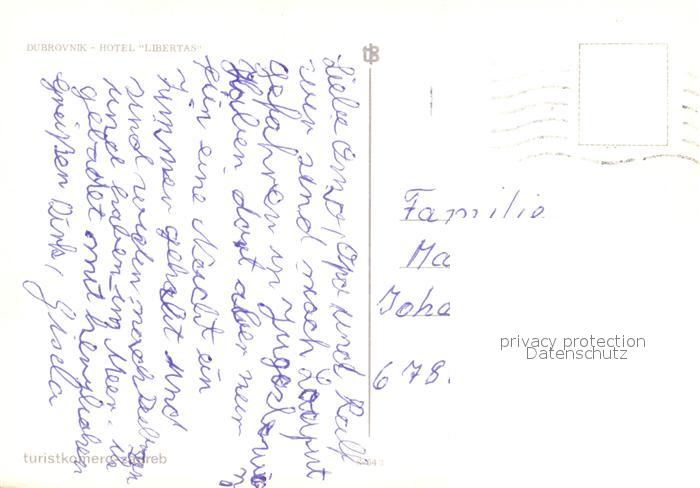 DUBROVNIK - HOTEL "LIBERTAS"
Liebe Oma, Opa und Ralf
wir sind nach
gefahren in Jugoslawien
Haben dort aber nur
für eine Nacht ein
Zimmer gehabt und
sind weiter nach
und haben im Meer
gebadet mit herzlichen
grüßen Dirk, Gisela
Familie
Ma
Joha
678.
privacy protection
Datenschutz
turistkomerc-zagreb